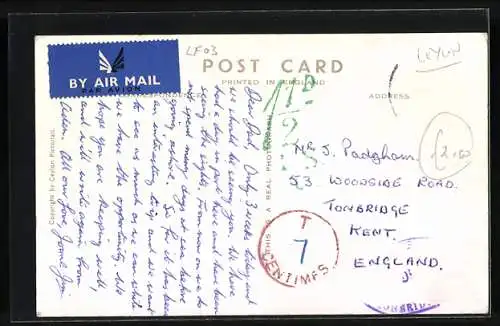 LF03
CEYLON
POST CARD
PRINTED IN ENGLAND
BY AIR MAIL
PAR AVION
ADDRESS
Copyright by Ceylon Pictorials.
Dear Dad, Only 3 weeks today and
we should be seeing you. We have
had a day in port here and have been
seeing the sights. From now on we do
not spend many days at sea before
going ashore. So far it has been
an interesting trip and we want
to see as much as we can while
we have the opportunity. We
hope you are keeping well,
and will write again from
Aden. All our love,
THIS IS A REAL PHOTOGRAPH
T
7
CENTIMES.
MR J. Padgham.
53 WOODSIDE ROAD.
TONBRIDGE
KENT.
ENGLAND.
£2.00
TONBRIDGE